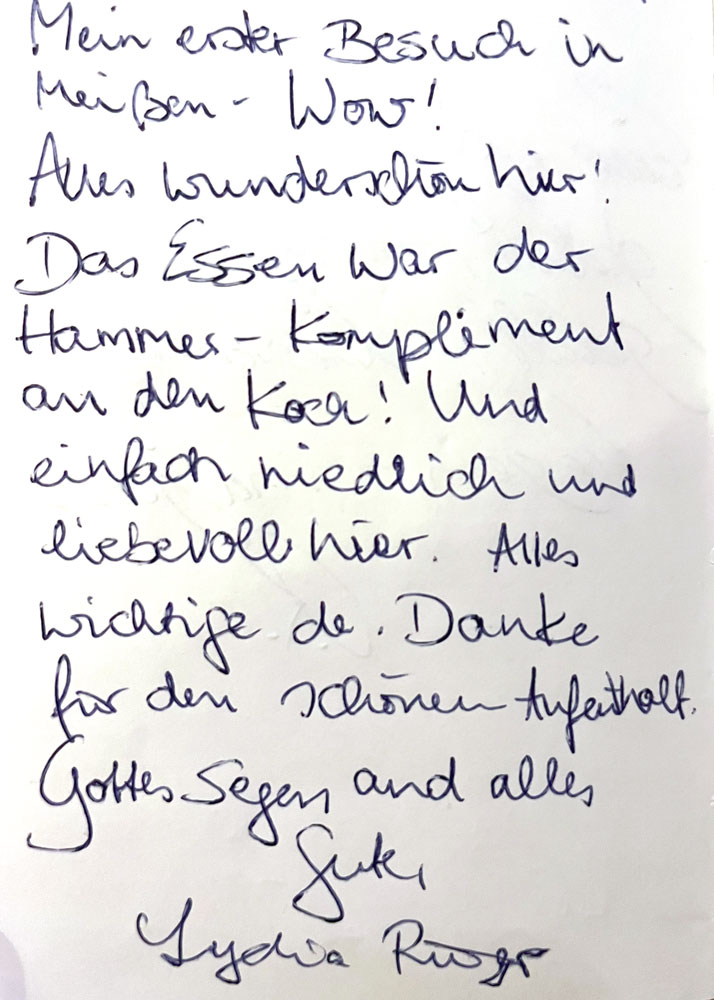 Mein erster Besuch in
Meißen - Wow!
Alles wunderschön hier!
Das Essen war der
Hammer - Kompliment
an den Koch! Und
einfach niedlich und
liebevoll hier. Alles
wichtige da. Danke
für den schönen Aufenthalt.
Gottes Segen und alles
Gute,
Lydia